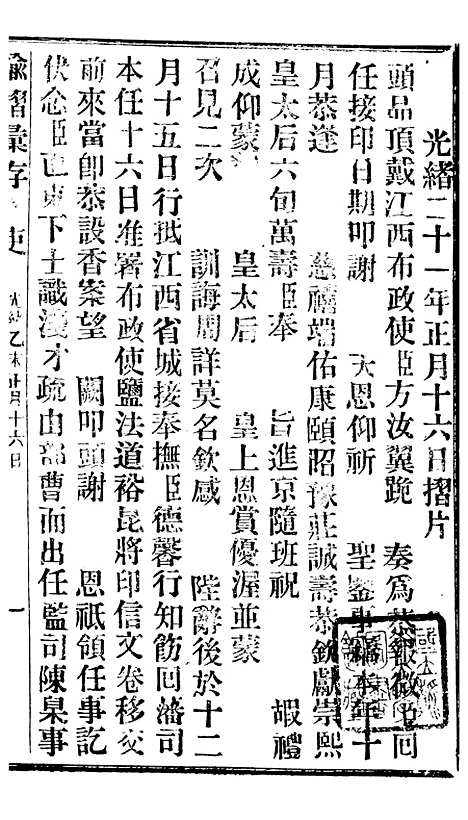 光緒二十一年正月十六日摺片
頭品頂戴江西布政使臣方汝翼跪 奏爲恭報微臣回
任接印日期叩謝 天恩仰祈 聖鑒事竊本年十
月恭逢 慈禧端佑康頤昭豫莊誠壽恭欽獻崇熙
皇太后六旬萬壽臣奉 旨進京隨班祝 嘏禮
成仰蒙 皇太后 皇上恩賞優渥並蒙
召見二次 訓誨周詳莫名欽感 陛辭後於十二
月十五日行抵江西省城接奉撫臣德馨行知飭回藩司
本任十六日准署布政使鹽法道裕昆將印信文卷移交
前來當卽恭設香案望 闕叩頭謝 恩祇領任事訖
伏念臣 東下士識淺才疏由部曹而出任監司陳臬事
諭摺彙存 光緒乙未正月十六日 一